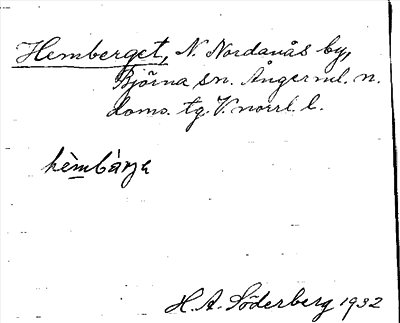 Hemberget, N. Nordanås by,
Björna sn. Ångerml. n.
doms. tg. V. norrl. l.
hèmbàrjə
H. A. Söderberg 1932